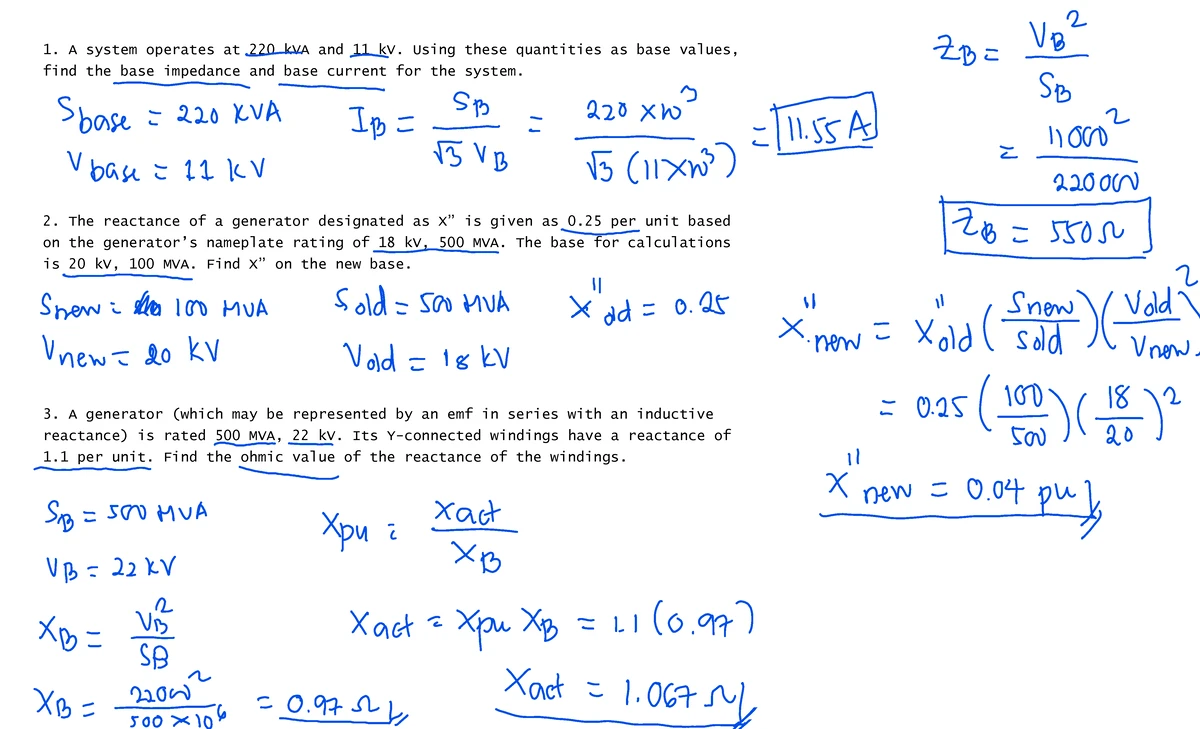 1. A system operates at 220 kVA and 11 kV. Using these quantities as base values,
find the base impedance and base current for the system.
S base = 220 KVA
V base = 11 kV
I B = S B / √3 V B = 220 x10³ / √3 (11x10³) = 11.55 A
Z B = V B ² / S B
= 11000² / 220000
Z B = 550 Ω
2. The reactance of a generator designated as X” is given as 0.25 per unit based
on the generator’s nameplate rating of 18 kV, 500 MVA. The base for calculations
is 20 kV, 100 MVA. Find X” on the new base.
S new = 100 MVA
V new = 20 kV
S old = 500 MVA
V old = 18 kV
X" old = 0.25
X" new = X" old (S new / S old) (V old / V new)²
= 0.25 (100 / 500) (18 / 20)²
X" new = 0.04 pu
3. A generator (which may be represented by an emf in series with an inductive
reactance) is rated 500 MVA, 22 kV. Its Y-connected windings have a reactance of
1.1 per unit. Find the ohmic value of the reactance of the windings.
S B = 500 MVA
V B = 22 kV
X B = V B ² / S B
X B = 22000² / 500 x 10⁶ = 0.97 Ω
X pu = X act / X B
X act = X pu X B = 1.1 (0.97)
X act = 1.067 Ω